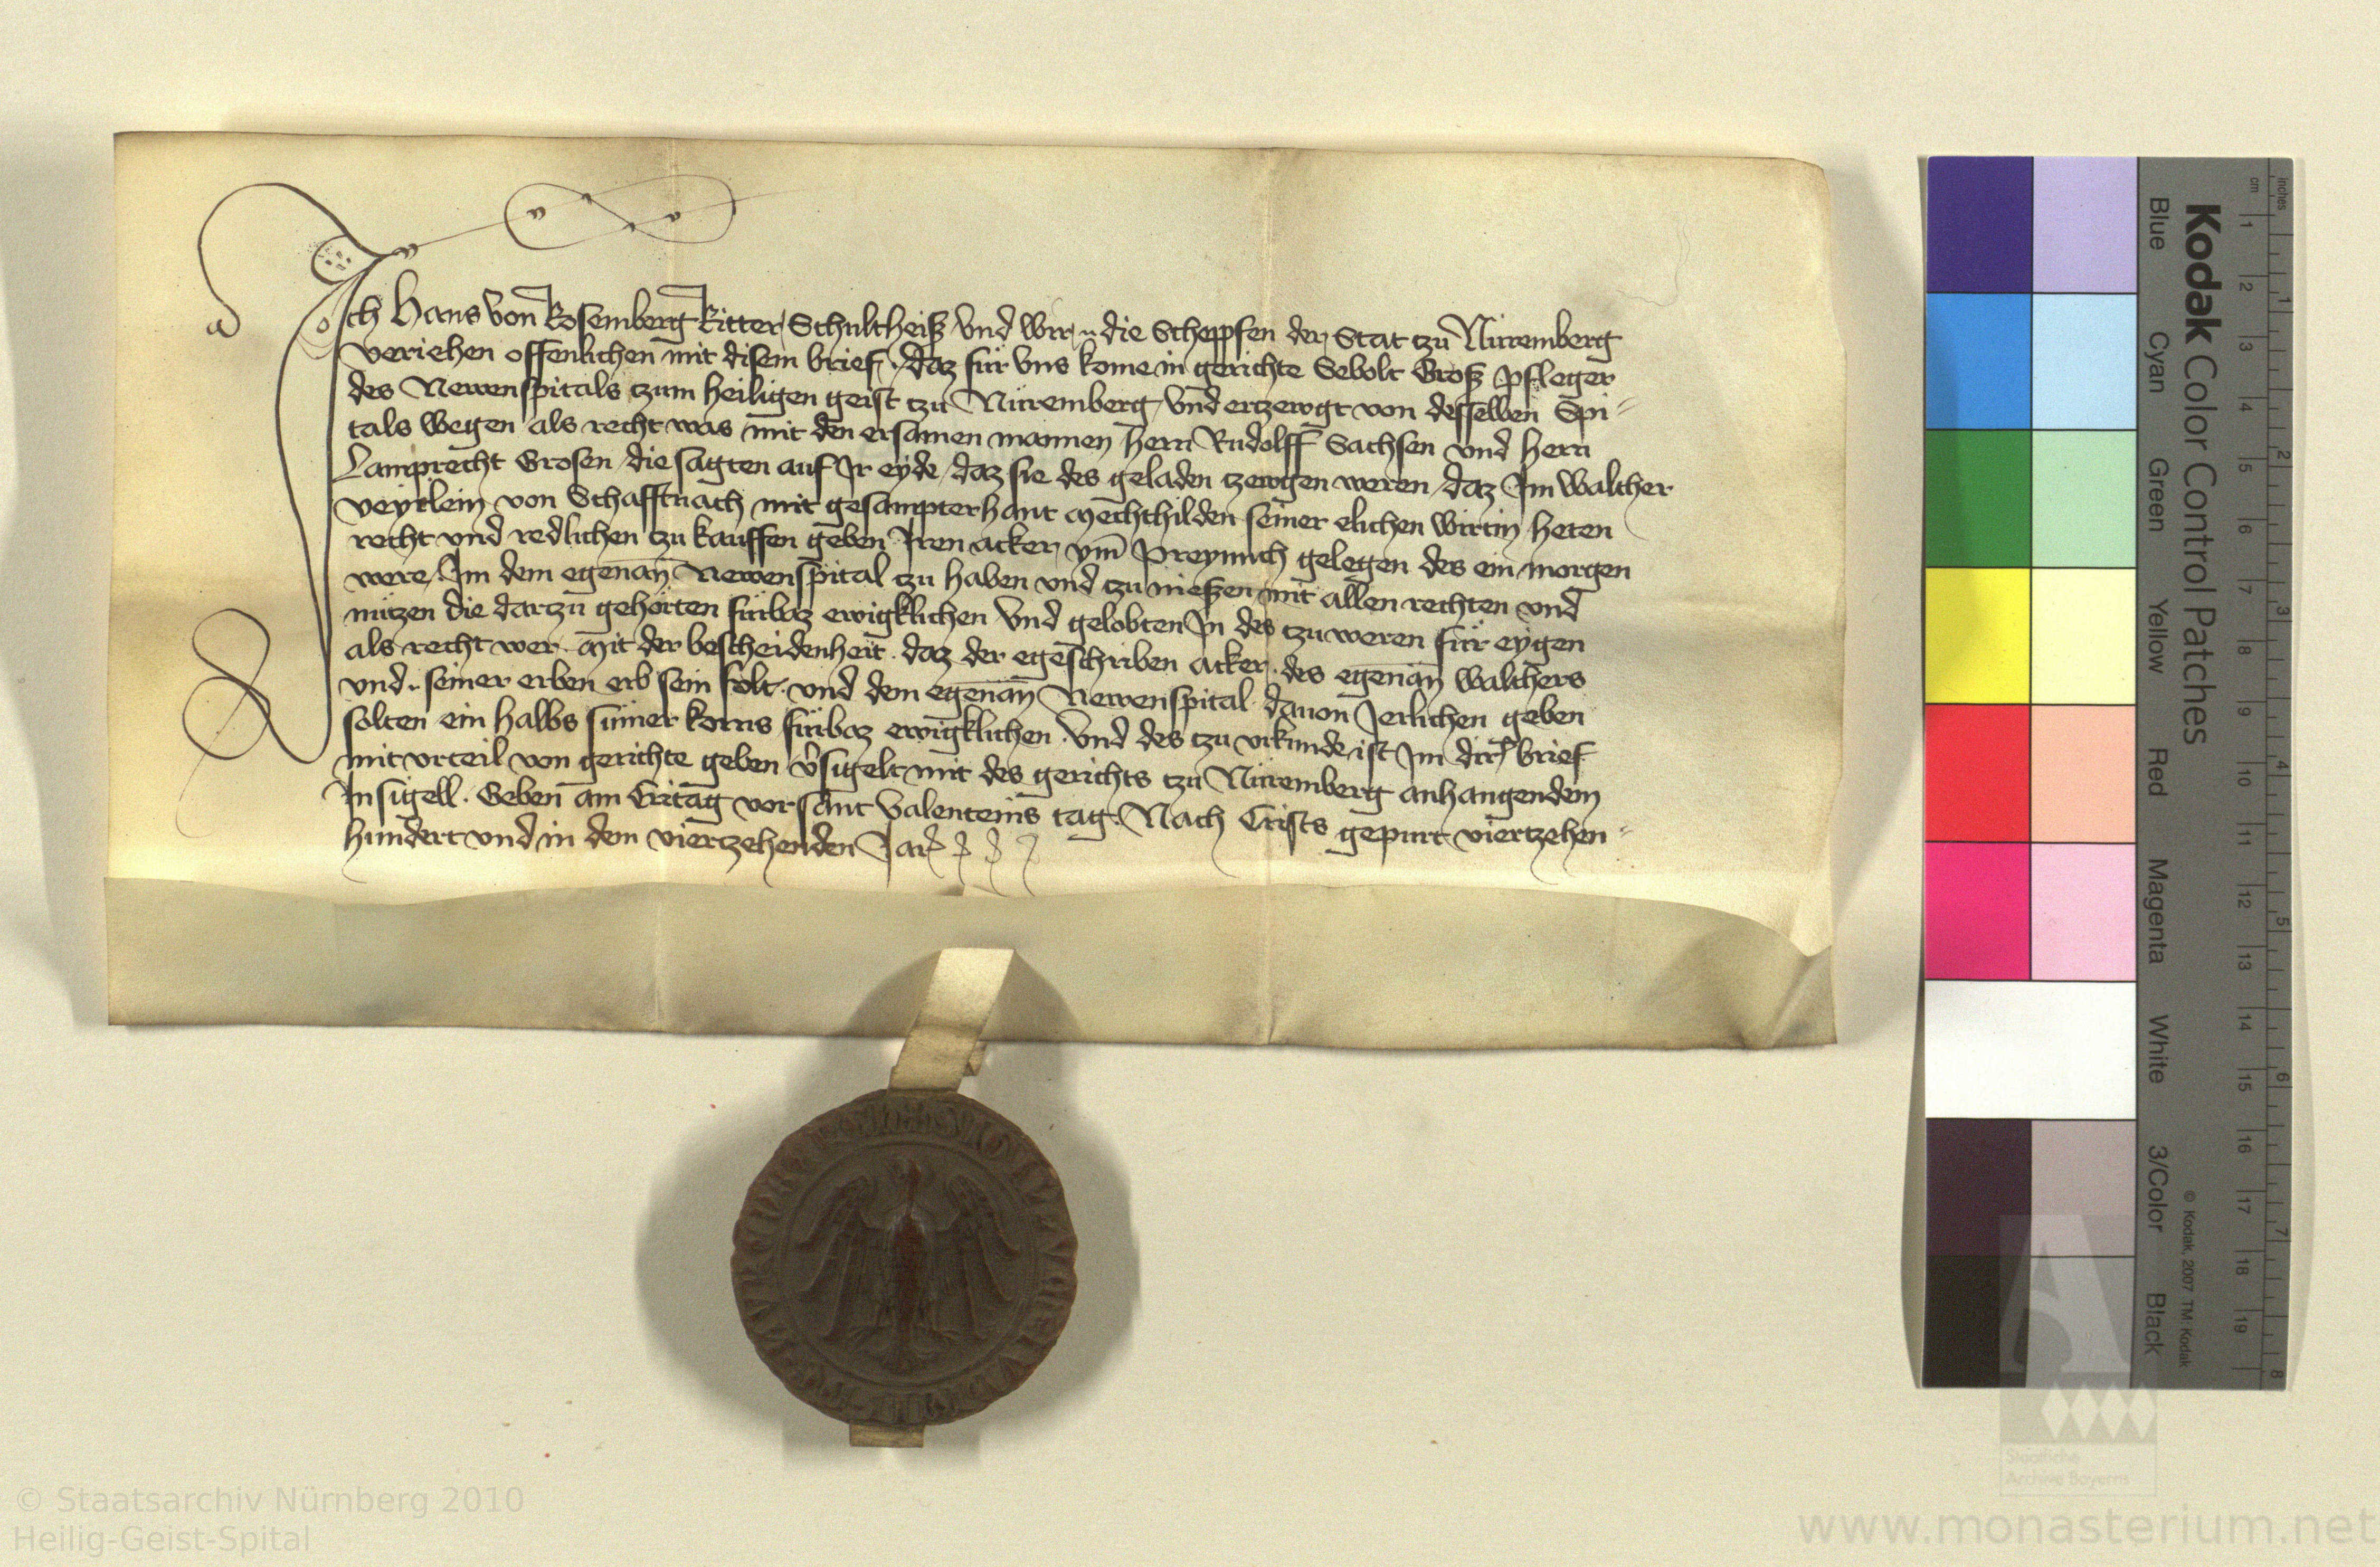 Ich Hans von Rosemberg Ritter, Schultheiß Vnd wir, die Scheppfen der Stat tzu Nüremberg
veriehen offenlichen mit disem brief, daz für vns kome in gerichte Sebolt Groß pfleger
des Newenspitals tzum heiligen geist tzu Nüremberg, Vnd ertzewgt von desselben Spi=
tals wegen als recht was mit den ersamen mannen hern Rudolff Sachsen vnd hern
Lamprecht Grosen, die sagten auf Jr eyde, daz sie des geladen tzewgen weren, daz Jm Walther
veytlein von Schafftnach mit gesampterhant Mechthilden seiner elichen wirtin, heten
recht vnd redlichen tzu kauffen geben Jren acker, gelegen des ein morgen
were, Jm dem egenan̄ Newenspital tzu haben vnd tzu nießen mit allen rechten vnd
nützen die dartzu gehörten fürbaz ewigklichen Vnd gelobten Jn des tzu weren für eygen
als recht wer. Mit der bescheidenheit. daz der egeschriben acker. des egenan̄ Walthers
vnd seiner erben erb sein solt. vnd dem egenan̄ Newenspital dauon Jerlichen geben
solten ein halbs sümer korns fürbaz ewigklichen. Vnd des tzu vrkunde ist Jm brief
mit vrteil von gerichte geben v̾sigelt mit des gerichts tzu Nüremberg anhangendem
Jnsigell. Geben am Eritag vor sant Valenteins tag. Nach Crists gepurt viertzehen=
hundert vnd in dem viertzehenden Jar
Kodak Color Control Patches
Blue Cyan Green Yellow Red Magenta White 3/Color Black
© Kodak, 2007 TM: Kodak
inches 1 2 3 4 5 6 7 8
cm 1 2 3 4 5 6 7 8 9 10 11 12 13 14 15 16 17 18 19
Staatliche
Archive Bayerns
© Staatsarchiv Nürnberg 2010
Heilig-Geist-Spital
www.monasterium.net